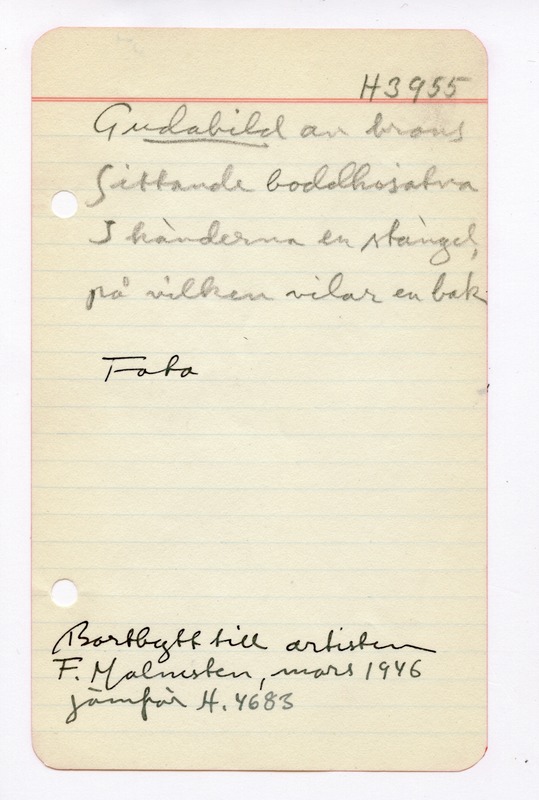 H3955
Gudabild av brons
Sittande boddhisatva
I händerna en stängel,
på vilken vilar en bok
Foto
Bortbytt till artisten
F. Malmsten, mars 1946
jämför H. 4683